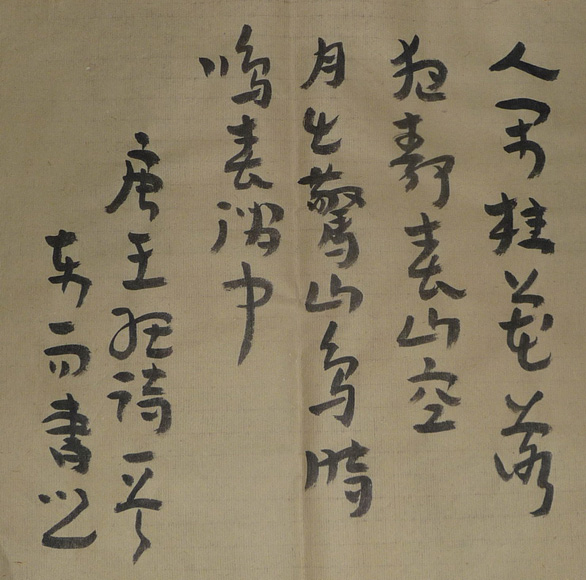 人闲桂花落
夜静春山空
月出驚山鸟时
鸣春涧中
唐王维诗一首
东而書之